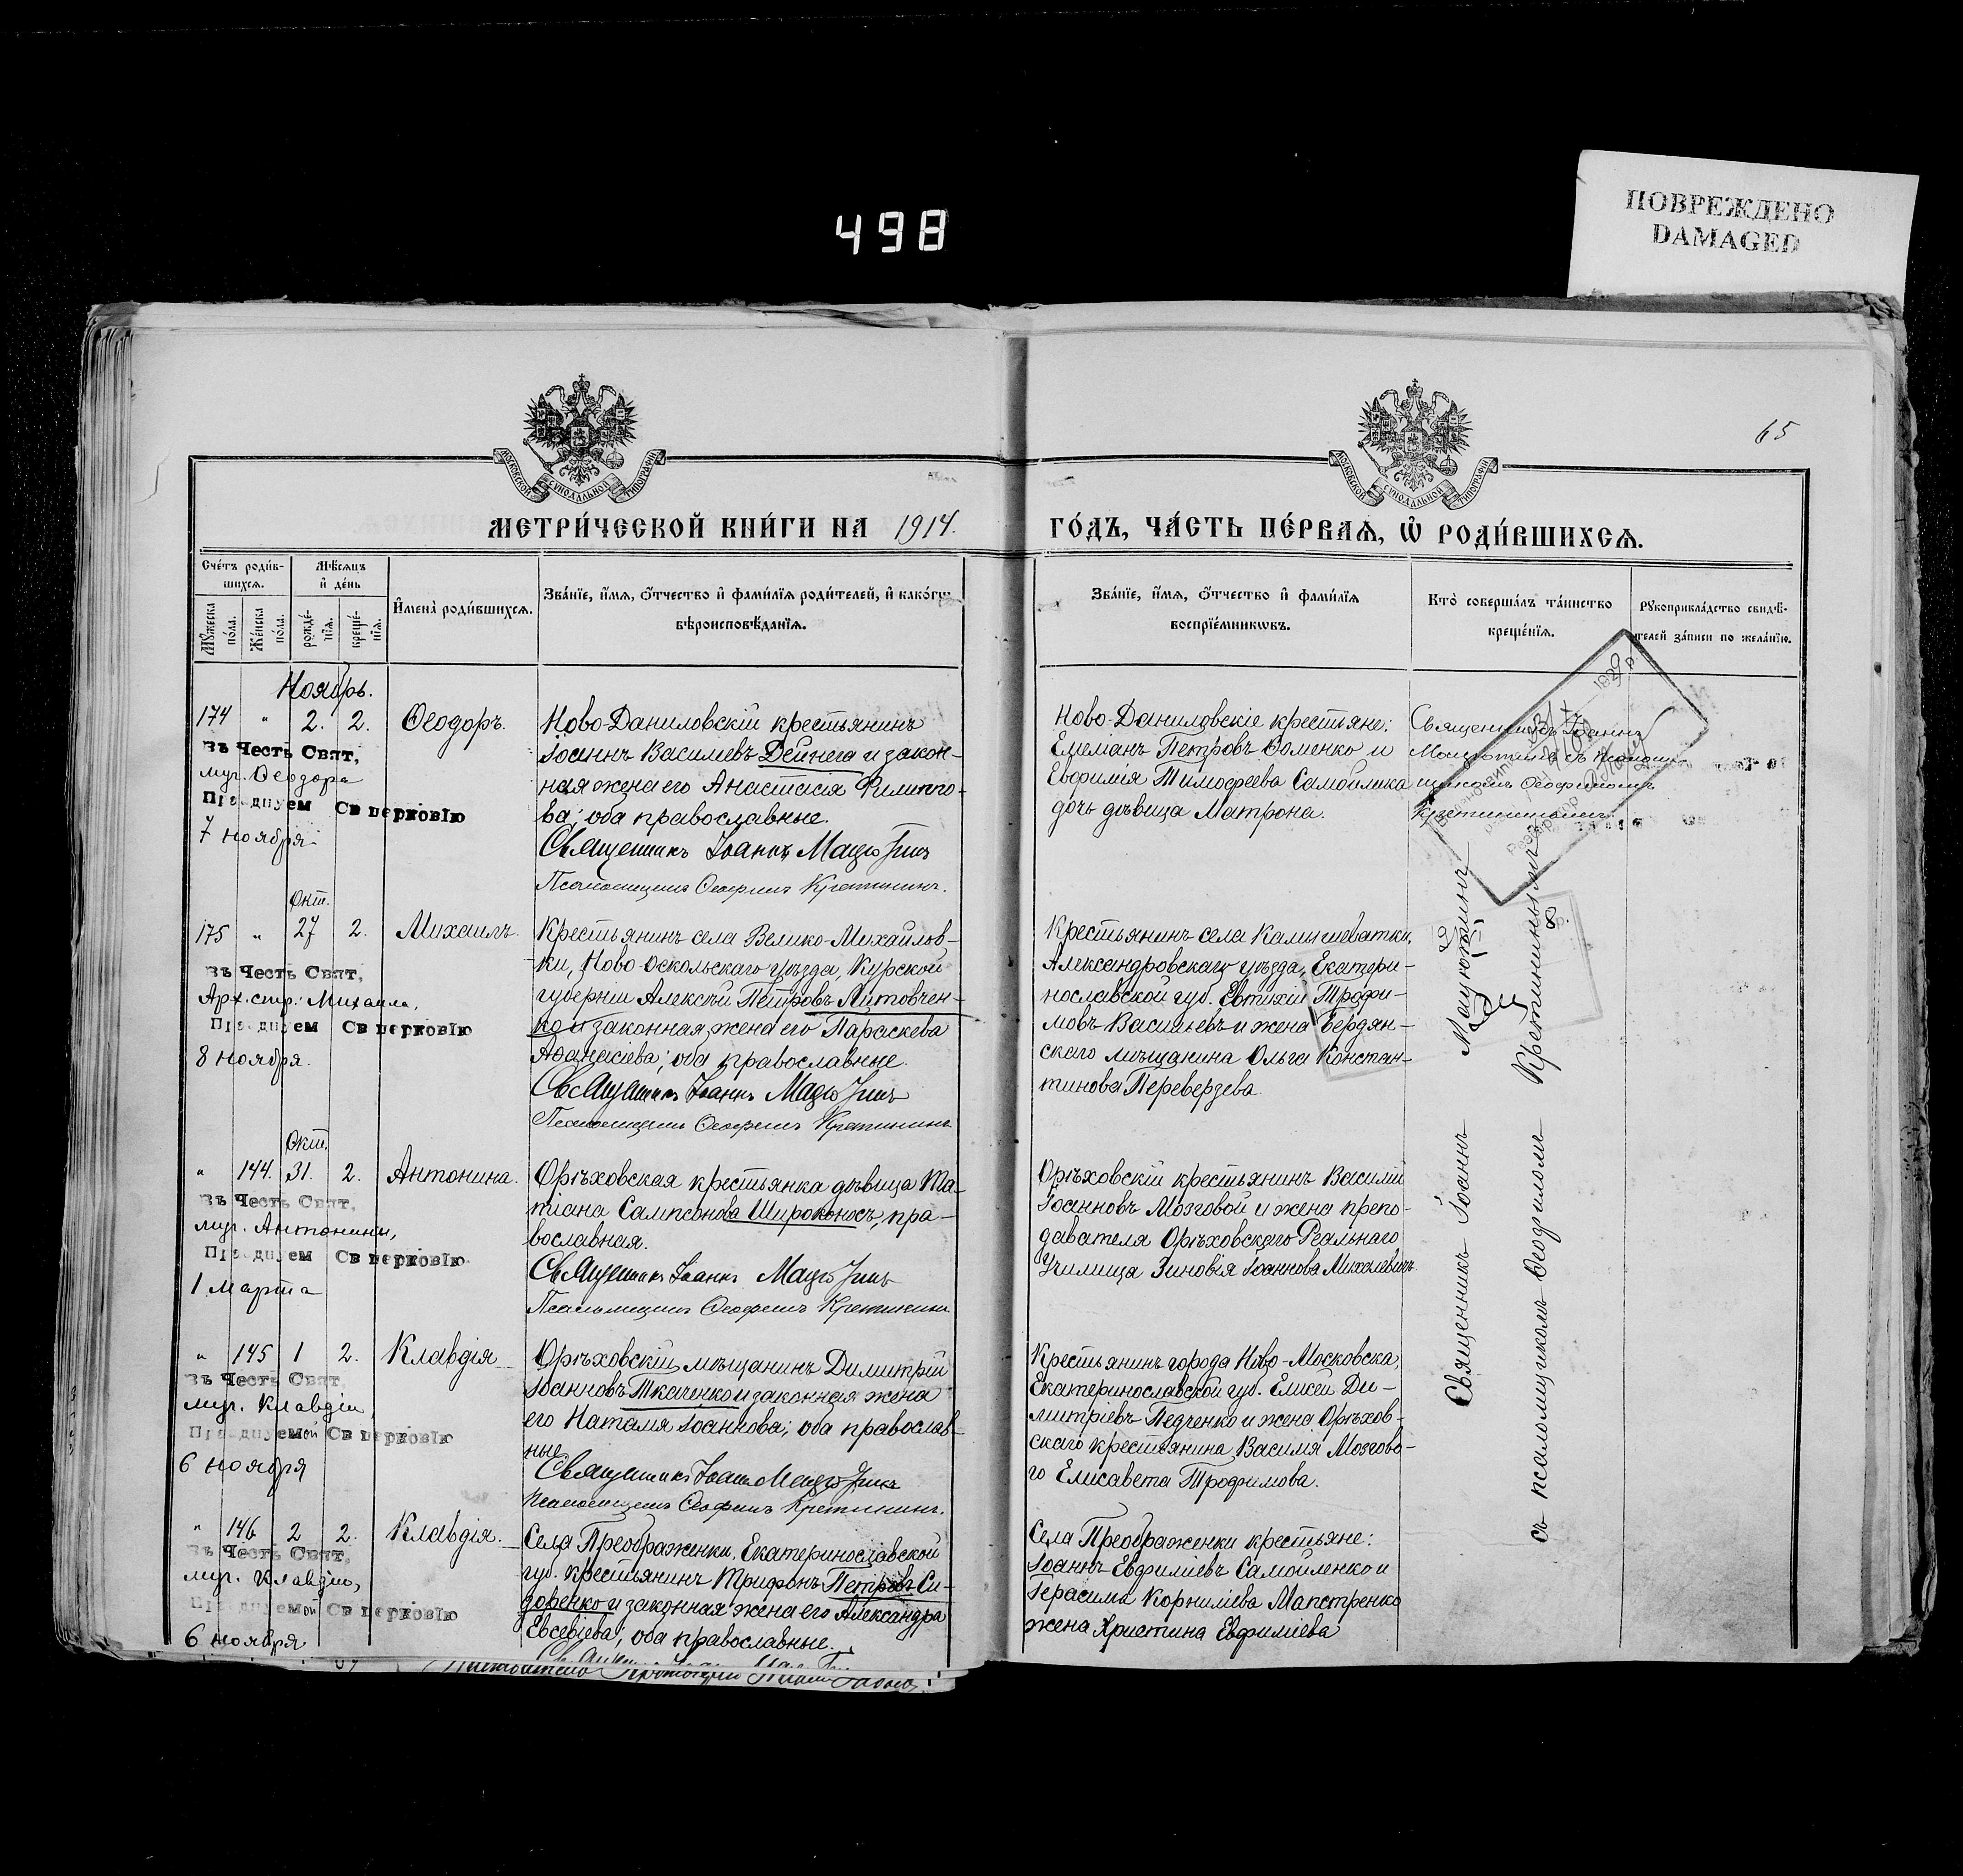 ПОВРЕЖДЕНО
DAMAGED
498
65
МОСКОВСКОЙ СУНОДАЛЬНОЙ ТИПОГРАФІИ
МОСКОВСКОЙ СУНОДАЛЬНОЙ ТИПОГРАФІИ
МЕТРИ́ЧЕСКОЙ КНИ́ГИ НА 1914.
ГО́ДЪ, ЧА́СТЬ ПЕ́РВАѦ, Ѡ҆ РОДИ́ВШИХСѦ.
Сче́тъ роди́в-
шихсѧ.
Мѣ́сѧцъ
и҆ де́нь
Мꙋ́жеска по́ла.
Же́нска по́ла.
рожде́-
нїѧ.
креще́-
нїѧ.
И҆мена̀ роди́вшихсѧ.
Зва́нїе, и҆́мѧ, ѻ҆́тчество и҆ фами́лїѧ роди́телей, и҆ како́гѡ
вѣроисповѣ́данїѧ.
Зва́нїе, и҆́мѧ, ѻ҆́тчество и҆ фами́лїѧ
воспрїе́мникѡвъ.
Кто̀ соверша́лъ та́инство
креще́нїѧ.
Рꙋкоприкла́дство свидѣ́-
телей за́писи по жела́нїю.
Ноябрь.
174 " 2. 2. Ѳеодоръ.
Въ Честь Свят,
муч. Ѳеодора
Празднуем Св церковію
7 ноября
Ново-Даниловскій крестьянинъ
Іоаннъ Василіевъ Дейнега и закон-
ная жена его Анастасія Филиппо-
ва; оба православные.
Священникъ Іоаннъ Мацютинъ
Псаломщикъ Ѳеофилъ Кретининъ.
Ново-Даниловскіе крестьяне:
Емеліанъ Петровъ Фоменко и
Евфимія Тимофеева Самойленка
дочь дѣвица Матрона.
Священникъ Іоаннъ
Мацютинъ съ псаломщикомъ Ѳеофиломъ
Кретининымъ
Окт.
175 " 27 2. Михаилъ.
Въ Честь Свят,
Арх. стр. Михаила,
Празднуем Св церковію
8 ноября.
Крестьянинъ села Велико-Михайлов-
ки, Ново-Оскольскаго уѣзда, Курской
губерніи Алексѣй Петровъ Литовчен-
ко и законная жена его Параскева
Аѳанасіева; оба православные.
Священникъ Іоаннъ Мацютинъ
Псаломщикъ Ѳеофилъ Кретининъ
Крестьянинъ села Камышеватки,
Александровскаго уѣзда, Екатери-
нославской губ. Евтихій Трофи-
мовъ Василіевъ и жена Бердян-
скаго мѣщанина Ольга Констан-
тинова Переверзева.
Окт.
" 144. 31. 2. Антонина.
Въ Честь Свят,
муч. Антонины,
Празднуем Св церковію
1 марта
Орѣховская крестьянка дѣвица Та-
тіана Сампсонова Широконосъ, пра-
вославная.
Священникъ Іоаннъ Мацютинъ
Псаломщикъ Ѳеофилъ Кретининъ
Орѣховскій крестьянинъ Василій
Іоанновъ Мозговой и жена препо-
давателя Орѣховскаго Реальнаго
Училища Зиновія Іоаннова Михалевичъ.
" 145 1 2. Клавдія
Въ Честь Свят,
муч. Клавдіи,
Празднуемой Св церковію
6 ноября
Орѣховскій мѣщанинъ Димитрій
Іоанновъ Ткаченко и законная жена
его Наталія Іоаннова; оба православ-
ные
Священникъ Іоаннъ Мацютинъ
Псаломщикъ Ѳеофилъ Кретининъ.
Крестьянинъ города Ново-Московска,
Екатеринославской губ. Елисей Ди-
митріевъ Педченко и жена Орѣхов-
скаго крестьянина Василія Мозгово-
го Елисавета Трофимова.
" 146 2 2. Клавдія.
Въ Честь Свят,
муч. Клавдіи,
Празднуемой Св церковію
6 ноября
Села Преображенки, Екатеринославской
губ. крестьянинъ Трифонъ Петровъ Си-
доренко и законная жена его Александра
Евсевіева; оба православные.
Села Преображенки крестьяне:
Іоаннъ Евфиміевъ Самойленко и
Герасима Корниліева Мапстренко
жена Христина Евфиміева
Священникъ Іоаннъ Мацютинъ
съ псаломщикомъ Ѳеофиломъ Кретининымъ